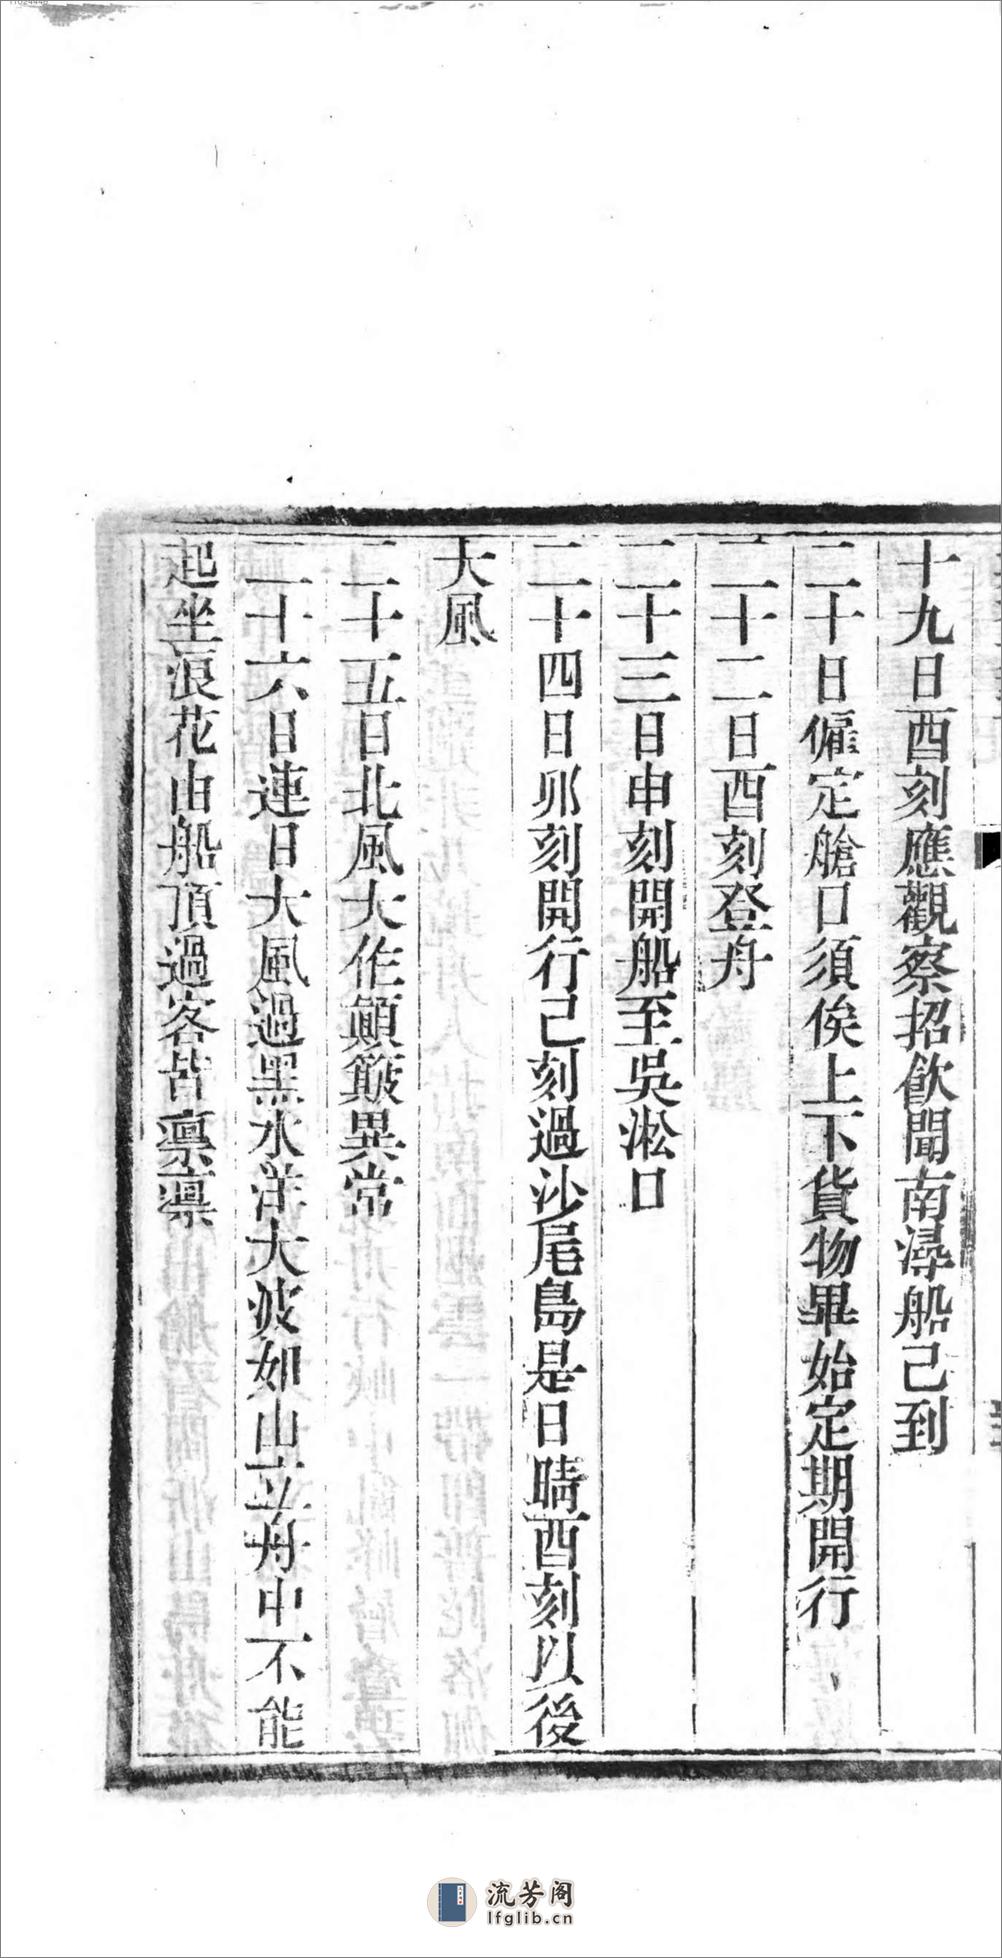 十九日酉刻應觀察招飲聞南潯船己到
二十日僱定艙口須俟上下貨物畢始定期開行
二十二日酉刻登舟
二十三日申刻開船至吳淞口
二十四日夘刻開行己刻過沙尾島是日晴酉刻以後
大風
二十五日北風大作顚簸異常
二十六日連日大風過黑水洋大波如山立舟中不能
起坐浪花由船頂過客皆凛凛
流芳阁
lfglib.cn